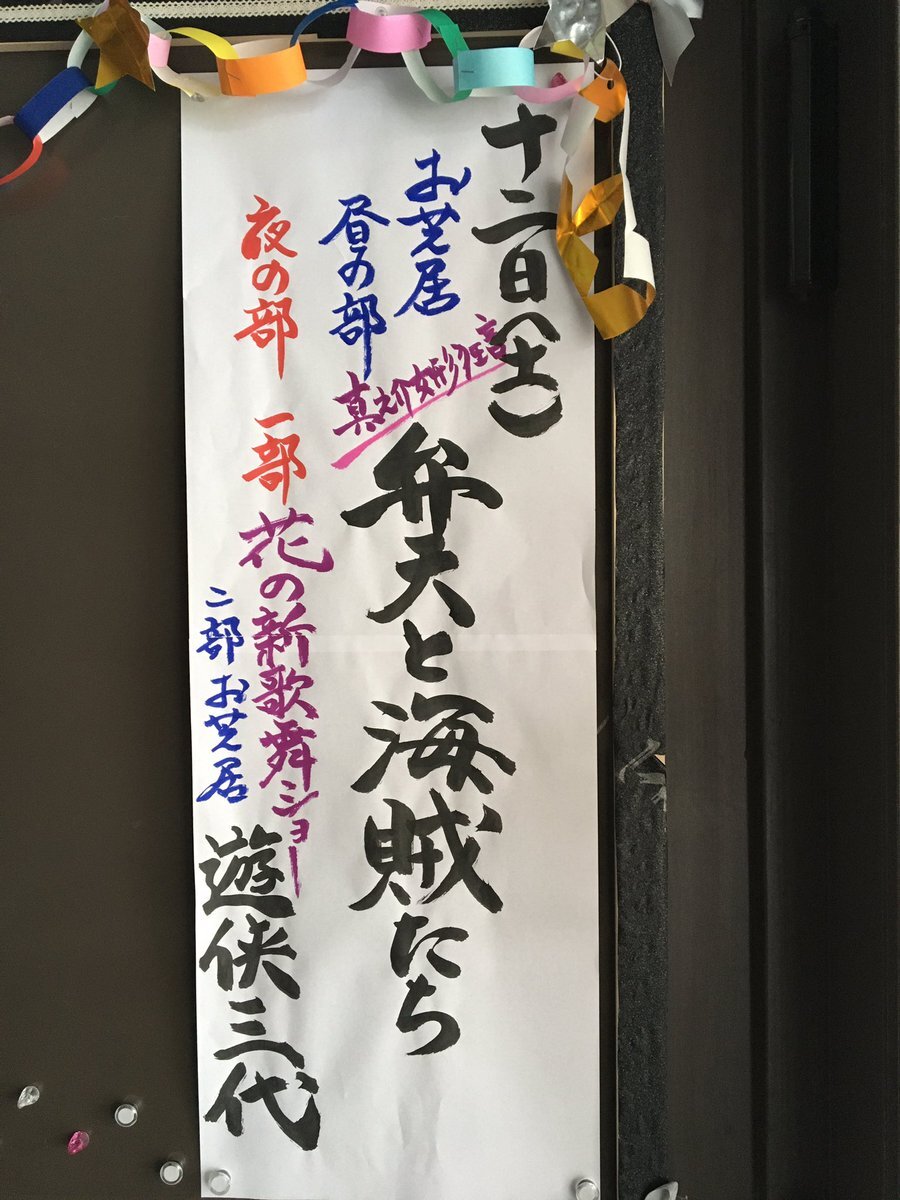 十二日(土)
お芝居
昼の部
真之介女形狂言
弁天と海賊たち
夜の部 一部
花の新歌舞ショー
二部お芝居
遊侠三代